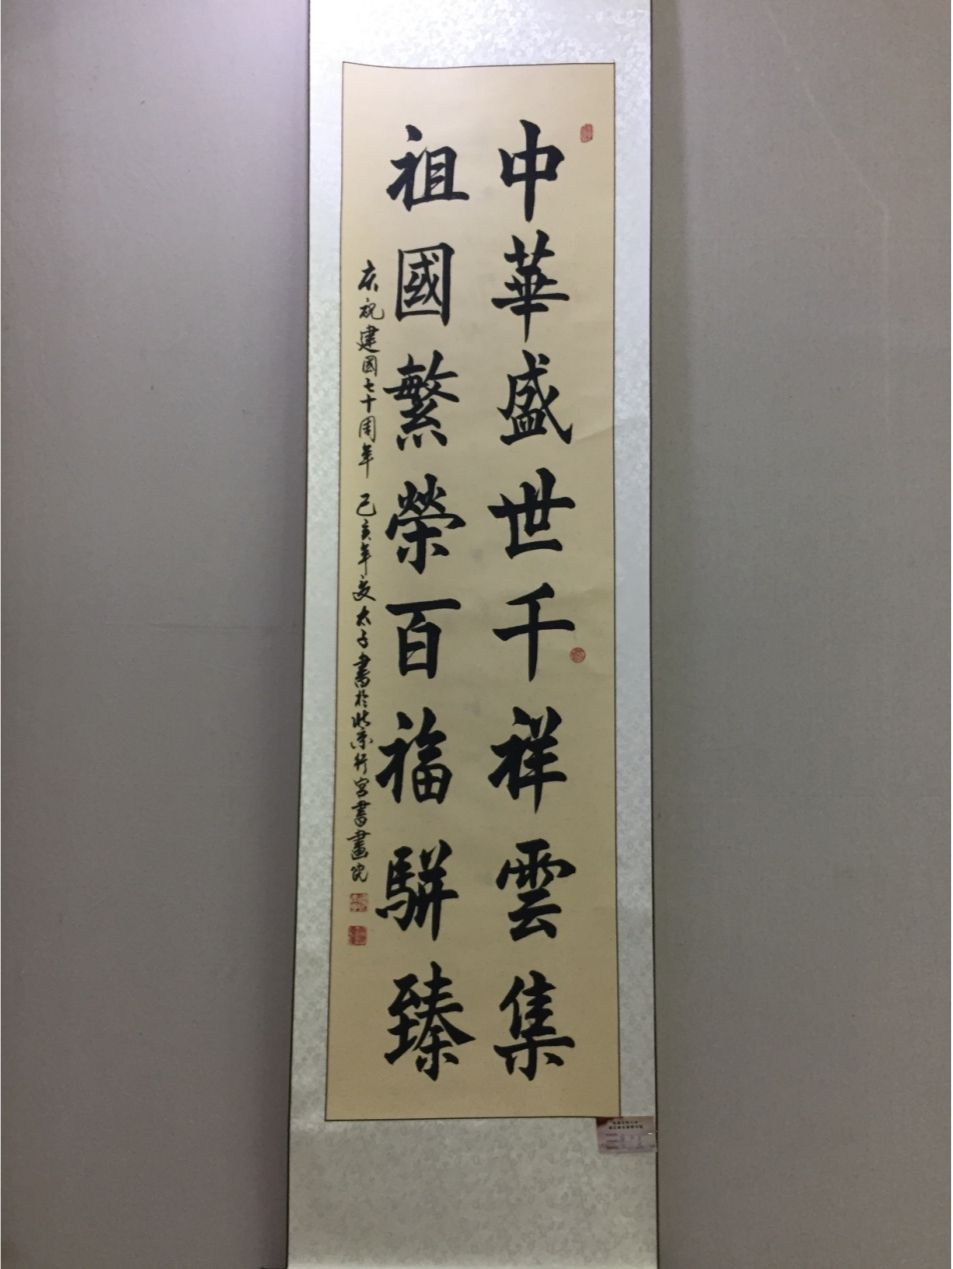 中華盛世千祥雲集
祖國繁榮百福駢臻
庆祝建國七十周年 己亥年夏太子書於北京行宮書畫院